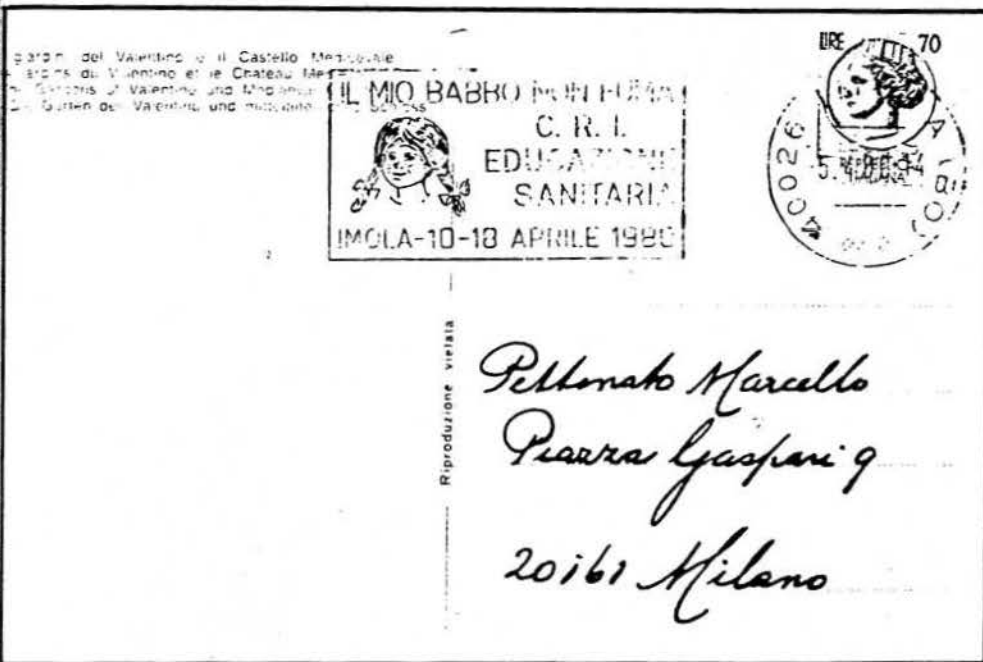 del Valentino e il Castello Medioevale
du Valentino et le Chateau
of Valentino und
Garten des Valentino und
LIRE 70
IL MIO BABBO NON FUMA
C. R. I.
EDUCAZIONE
SANITARIA
IMOLA-10-18 APRILE 1980
40026
Riproduzione vietata
Pettenato Marcello
Piazza Gaspari 9
20161 Milano